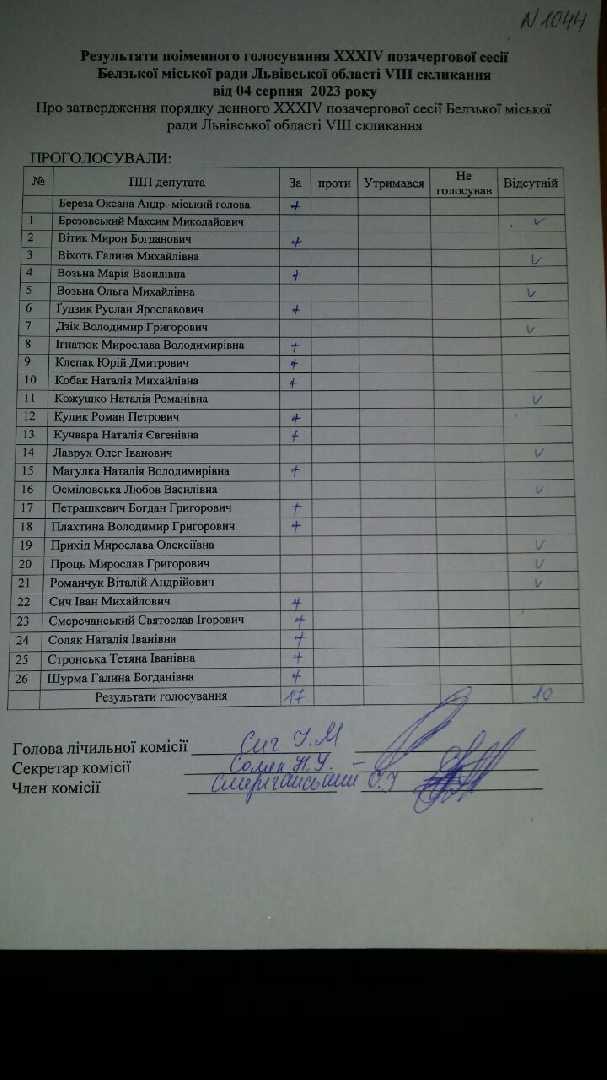 N 1044
Результати поіменного голосування XXXIV позачергової сесії
Белзької міської ради Львівської області VIII скликання
від 04 серпня 2023 року
Про затвердження порядку денного XXXIV позачергової сесії Белзької міської
ради Львівської області VIII скликання
ПРОГОЛОСУВАЛИ:
№ ПІП депутата За проти Утримався Не голосував Відсутній
Береза Оксана Андр.-міський голова +
1 Брезовський Максим Миколайович v
2 Вітик Мирон Богданович +
3 Віхоть Галина Михайлівна v
4 Возьна Марія Василівна +
5 Возьна Ольга Михайлівна v
6 Ґудзик Руслан Ярославович +
7 Дзік Володимир Григорович v
8 Ігнатюк Мирослава Володимирівна +
9 Клепак Юрій Дмитрович +
10 Кобак Наталія Михайлівна +
11 Кожушко Наталія Романівна v
12 Кулик Роман Петрович +
13 Кучвара Наталія Євгенівна +
14 Лаврук Олег Іванович v
15 Магулка Наталія Володимирівна +
16 Осміловська Любов Василівна v
17 Петрашкевич Богдан Григорович +
18 Плахтина Володимир Григорович +
19 Прихід Мирослава Олексіївна v
20 Проць Мирослав Григорович v
21 Романчук Віталій Андрійович v
22 Сич Іван Михайлович +
23 Сморочанський Святослав Ігорович +
24 Соляк Наталія Іванівна +
25 Стронська Тетяна Іванівна +
26 Шурма Галина Богданівна +
Результати голосування 17 10
Голова лічильної комісії Сич І.М
Секретар комісії Соляк Н.І.
Член комісії